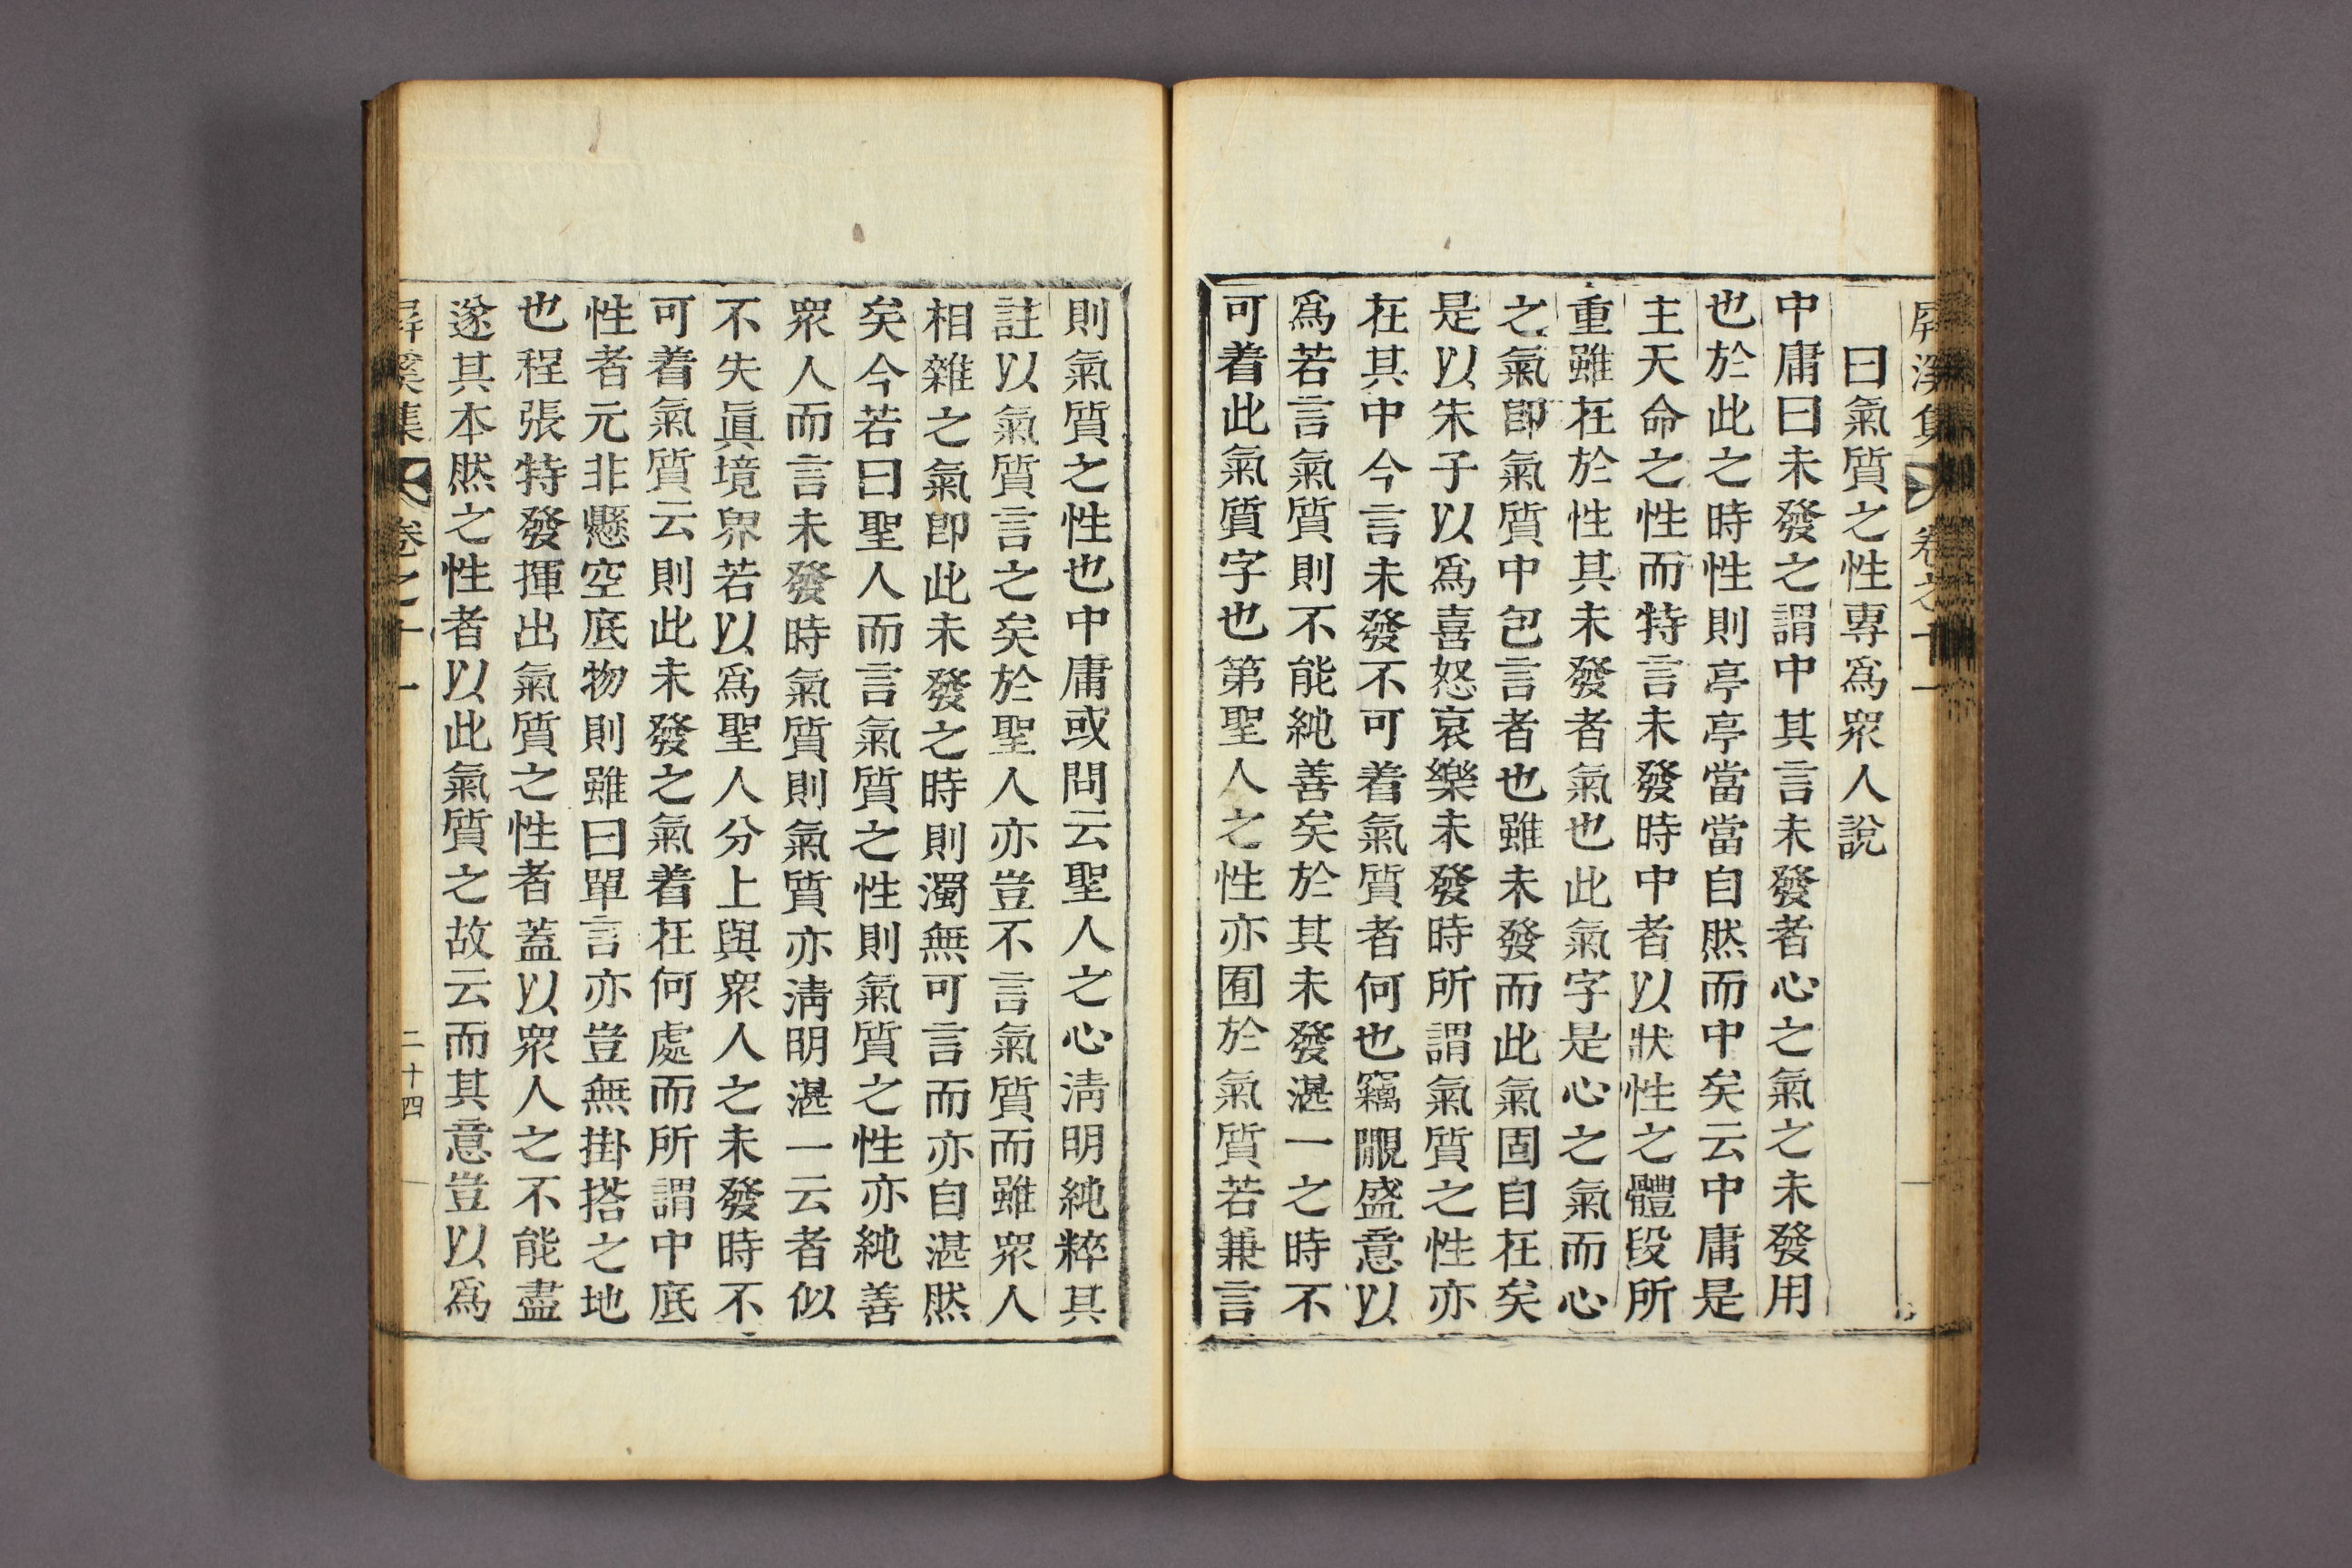 屛溪集 卷之十一
曰氣質之性專爲衆人說
中庸曰未發之謂中其言未發者心之氣之未發用
也於此之時性則亭亭當當自然而中矣云中庸是
主天命之性而特言未發時中者以狀性之體段所
重雖在於性其未發者氣也此氣字是心之氣而心
之氣卽氣質中包言者也雖未發而此氣固自在矣
是以朱子以爲喜怒哀樂未發時所謂氣質之性亦
在其中今言未發不可着氣質者何也竊覵盛意以
爲若言氣質則不能純善矣於其未發湛一之時不
可着此氣質字也第聖人之性亦囿於氣質若兼言
則氣質之性也中庸或問云聖人之心淸明純粹其
註以氣質言之矣於聖人亦豈不言氣質而雖衆人
相雜之氣卽此未發之時則濁無可言而亦自湛然
矣今若曰聖人而言氣質之性則氣質之性亦純善
衆人而言未發時氣質則氣質亦淸明湛一云者似
不失眞境界若以爲聖人分上與衆人之未發時不
可着氣質云則此未發之氣着在何處而所謂中底
性者元非懸空底物則雖曰單言亦豈無掛搭之地
也程張特發揮出氣質之性者蓋以衆人之不能盡
遂其本然之性者以此氣質之故云而其意豈以爲
屛溪集 卷之十一 二十四